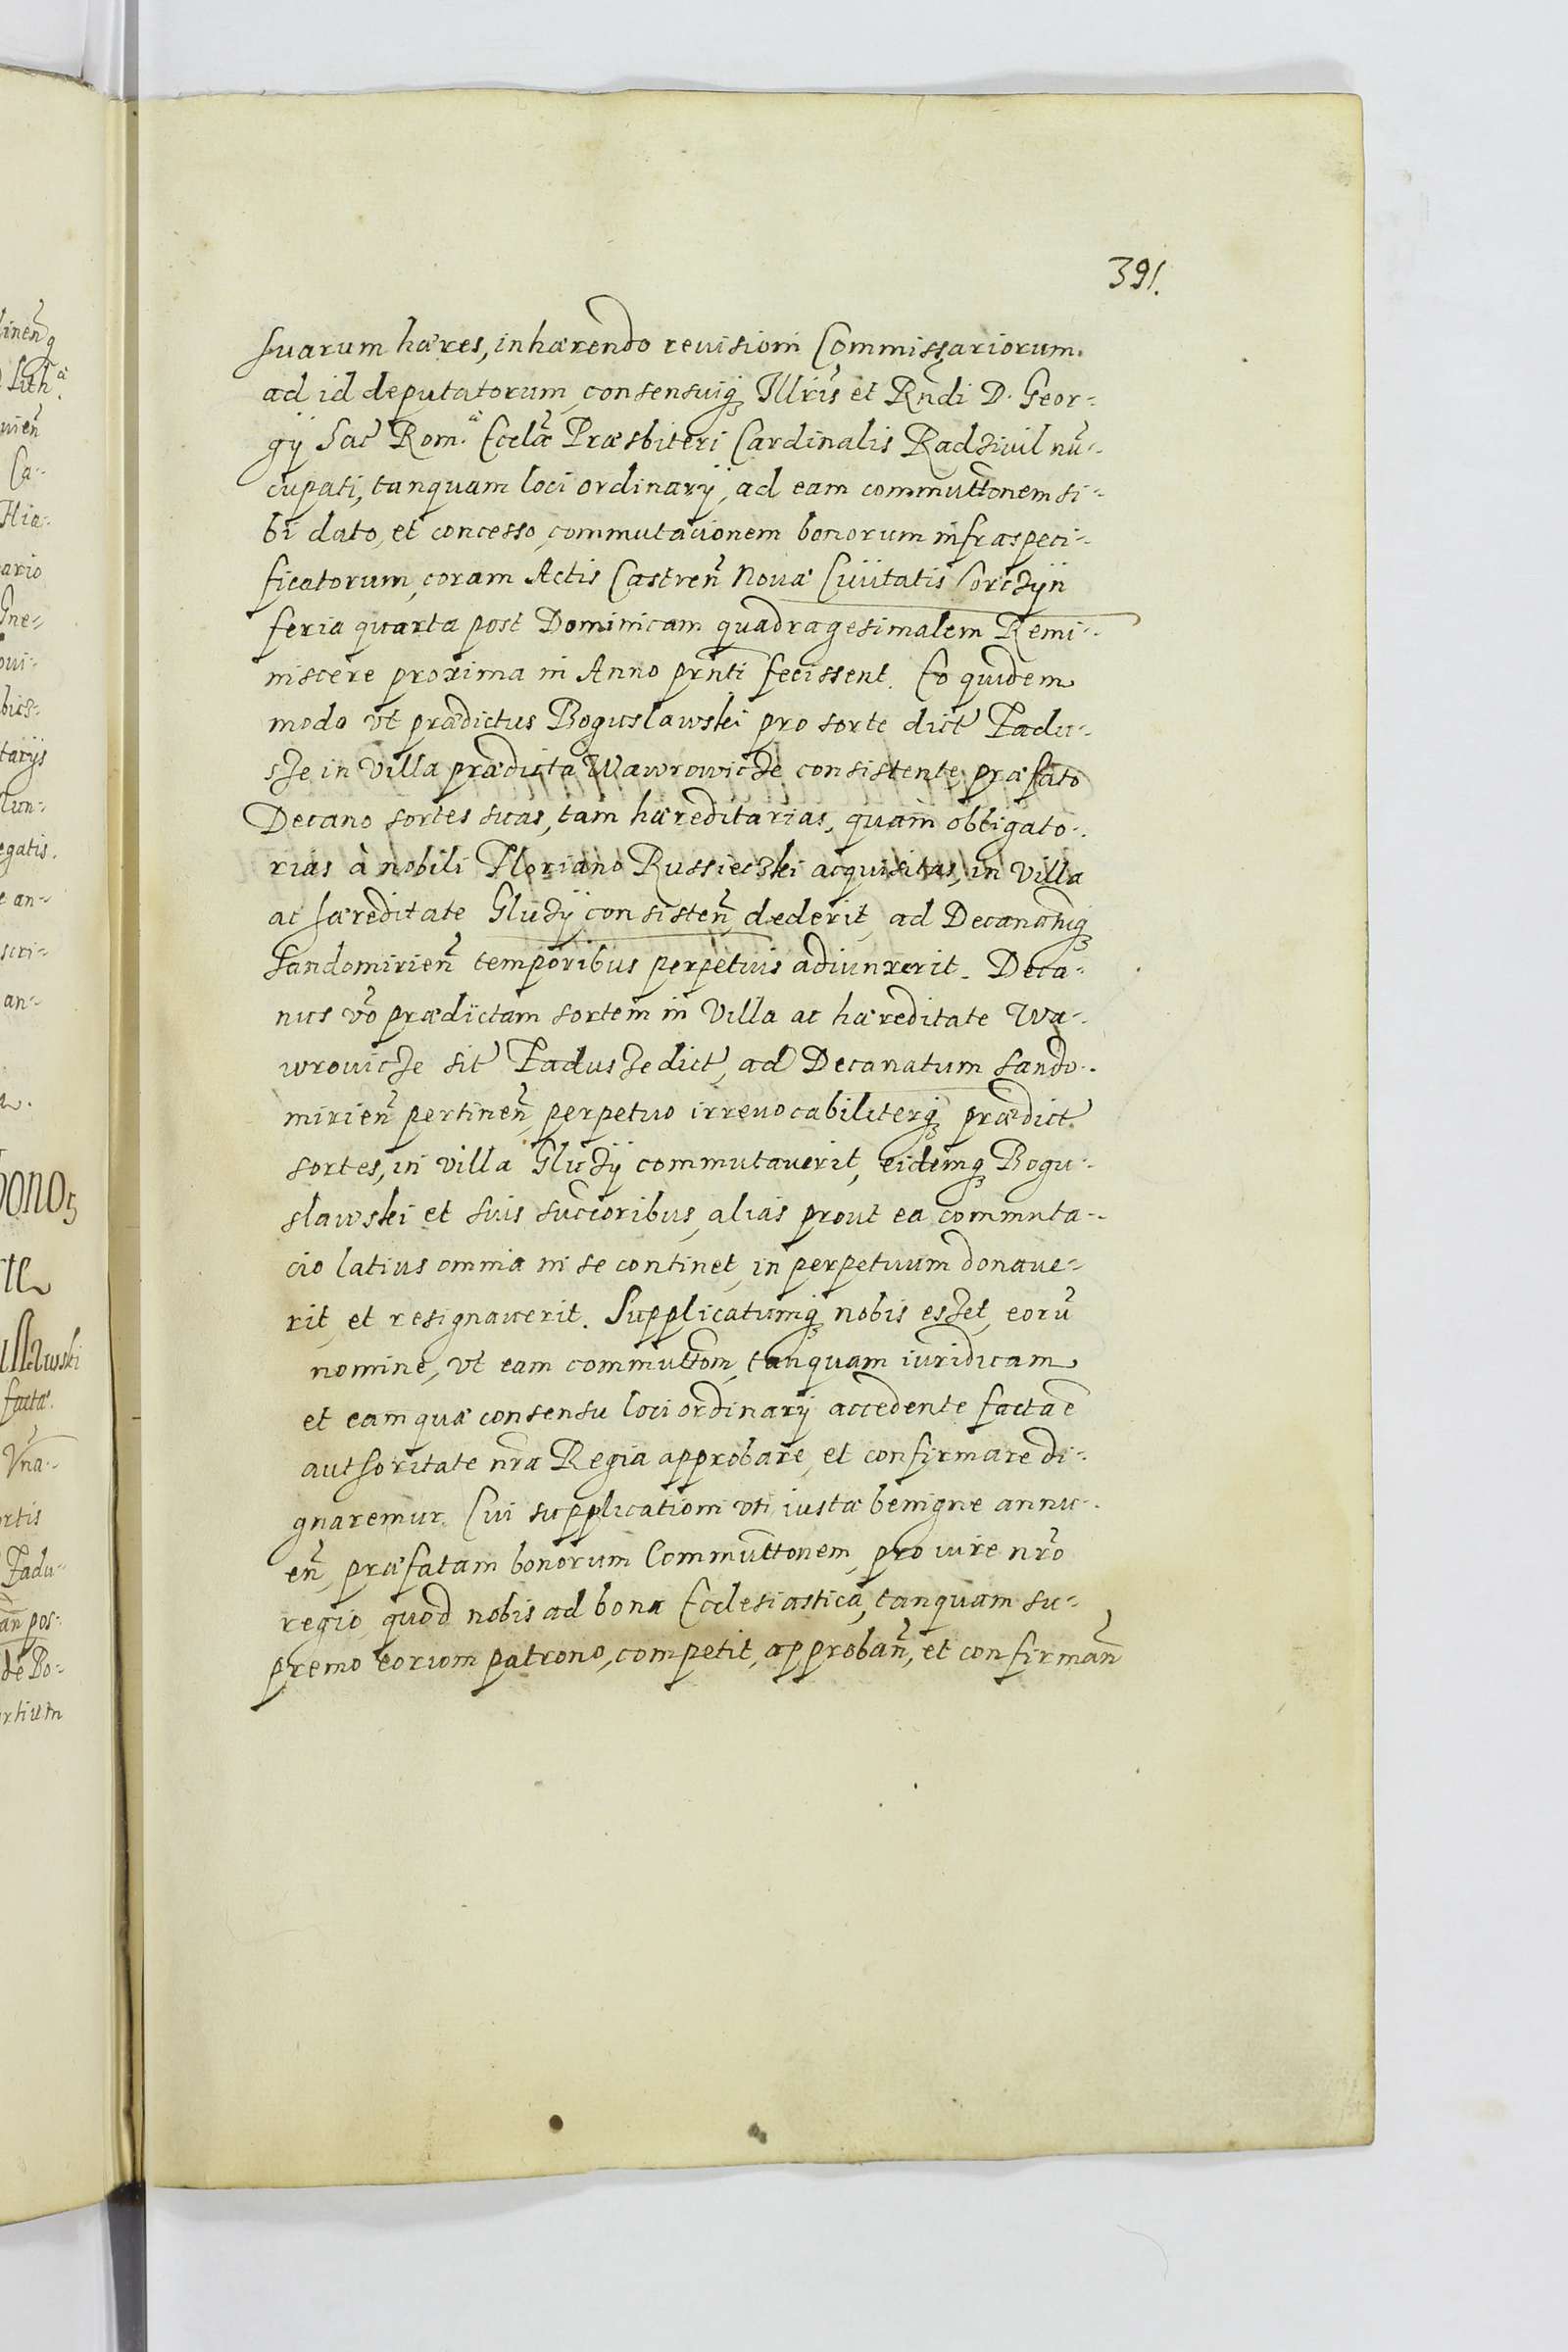 391.
suarum hæres, inhærendo reuisioni Commissariorum
ad id deputatorum, consensuiq3 Illris et Rndi D. Geor-
gij Sac Rom.æ Ecclæ Præsbiteri Cardinalis Radziuil nū-
cupati, tanquam loci ordinarij, ad eam commuttonem si-
bi dato, et concesso, commutacionem bonorum infraspeci-
ficatorum, coram Actis Castren Nouæ Ciuitatis Corczÿn
feria quarta post Dominicam quadragesimalem Remi-
niscere proxima in Anno prnti fecissent. Eo quidem
modo vt prædictus Boguslawski pro sorte dict Padu-
sze in Villa prædicta Wawrowicze consistente, præfato
Decano sortes suas, tam hæreditarias, quam obligato-
rias à nobili Floriano Russieczki acquisitas, in Villa
ac hæreditate Gluzÿ consisten, dederit, ad Decanatuq3
Sandomirien temporibus perpetuis adiunxerit. Deca-
nus vo prædictam sortem in Villa ac hæreditate Wa-
wrouicze sit Padusze dict, ad Decanatum Sando-
mirien pertinen, perpetuo irreuocabiliterq3 prædict
sortes, in villa Gluzÿ commutauerit, eidemq3 Bogu-
slawski et suis succioribus, alias prout ea commuta-
cio latius omnia in se continet, in perpetuum donaue-
rit, et resignauerit. Supplicatumq3 nobis esset, eorū
nomine, vt eam commuttom, tanquam iuridicam
et eam quæ consensu loci ordinarij accedente facta ē
authoritate nra Regia approbare, et confirmare di-
gnaremur. Cui supplicationi vti iustæ benigne annu-
en, præfatam bonorum Commuttonem, pro iure nro
regio, quod nobis ad bona Ecclesiastica, tanquam su-
premo eorum patrono, competit, approban, et confirman
linenq
Lith.æ
uien
Ca-
Ilia-
ario
Gne-
oui-
bics-
tarijs
egatis.
e an-
scri-
an-
bono
wski
factæ.
Vna-
ortis
Padu-
an pos-
de Bo-
rtium